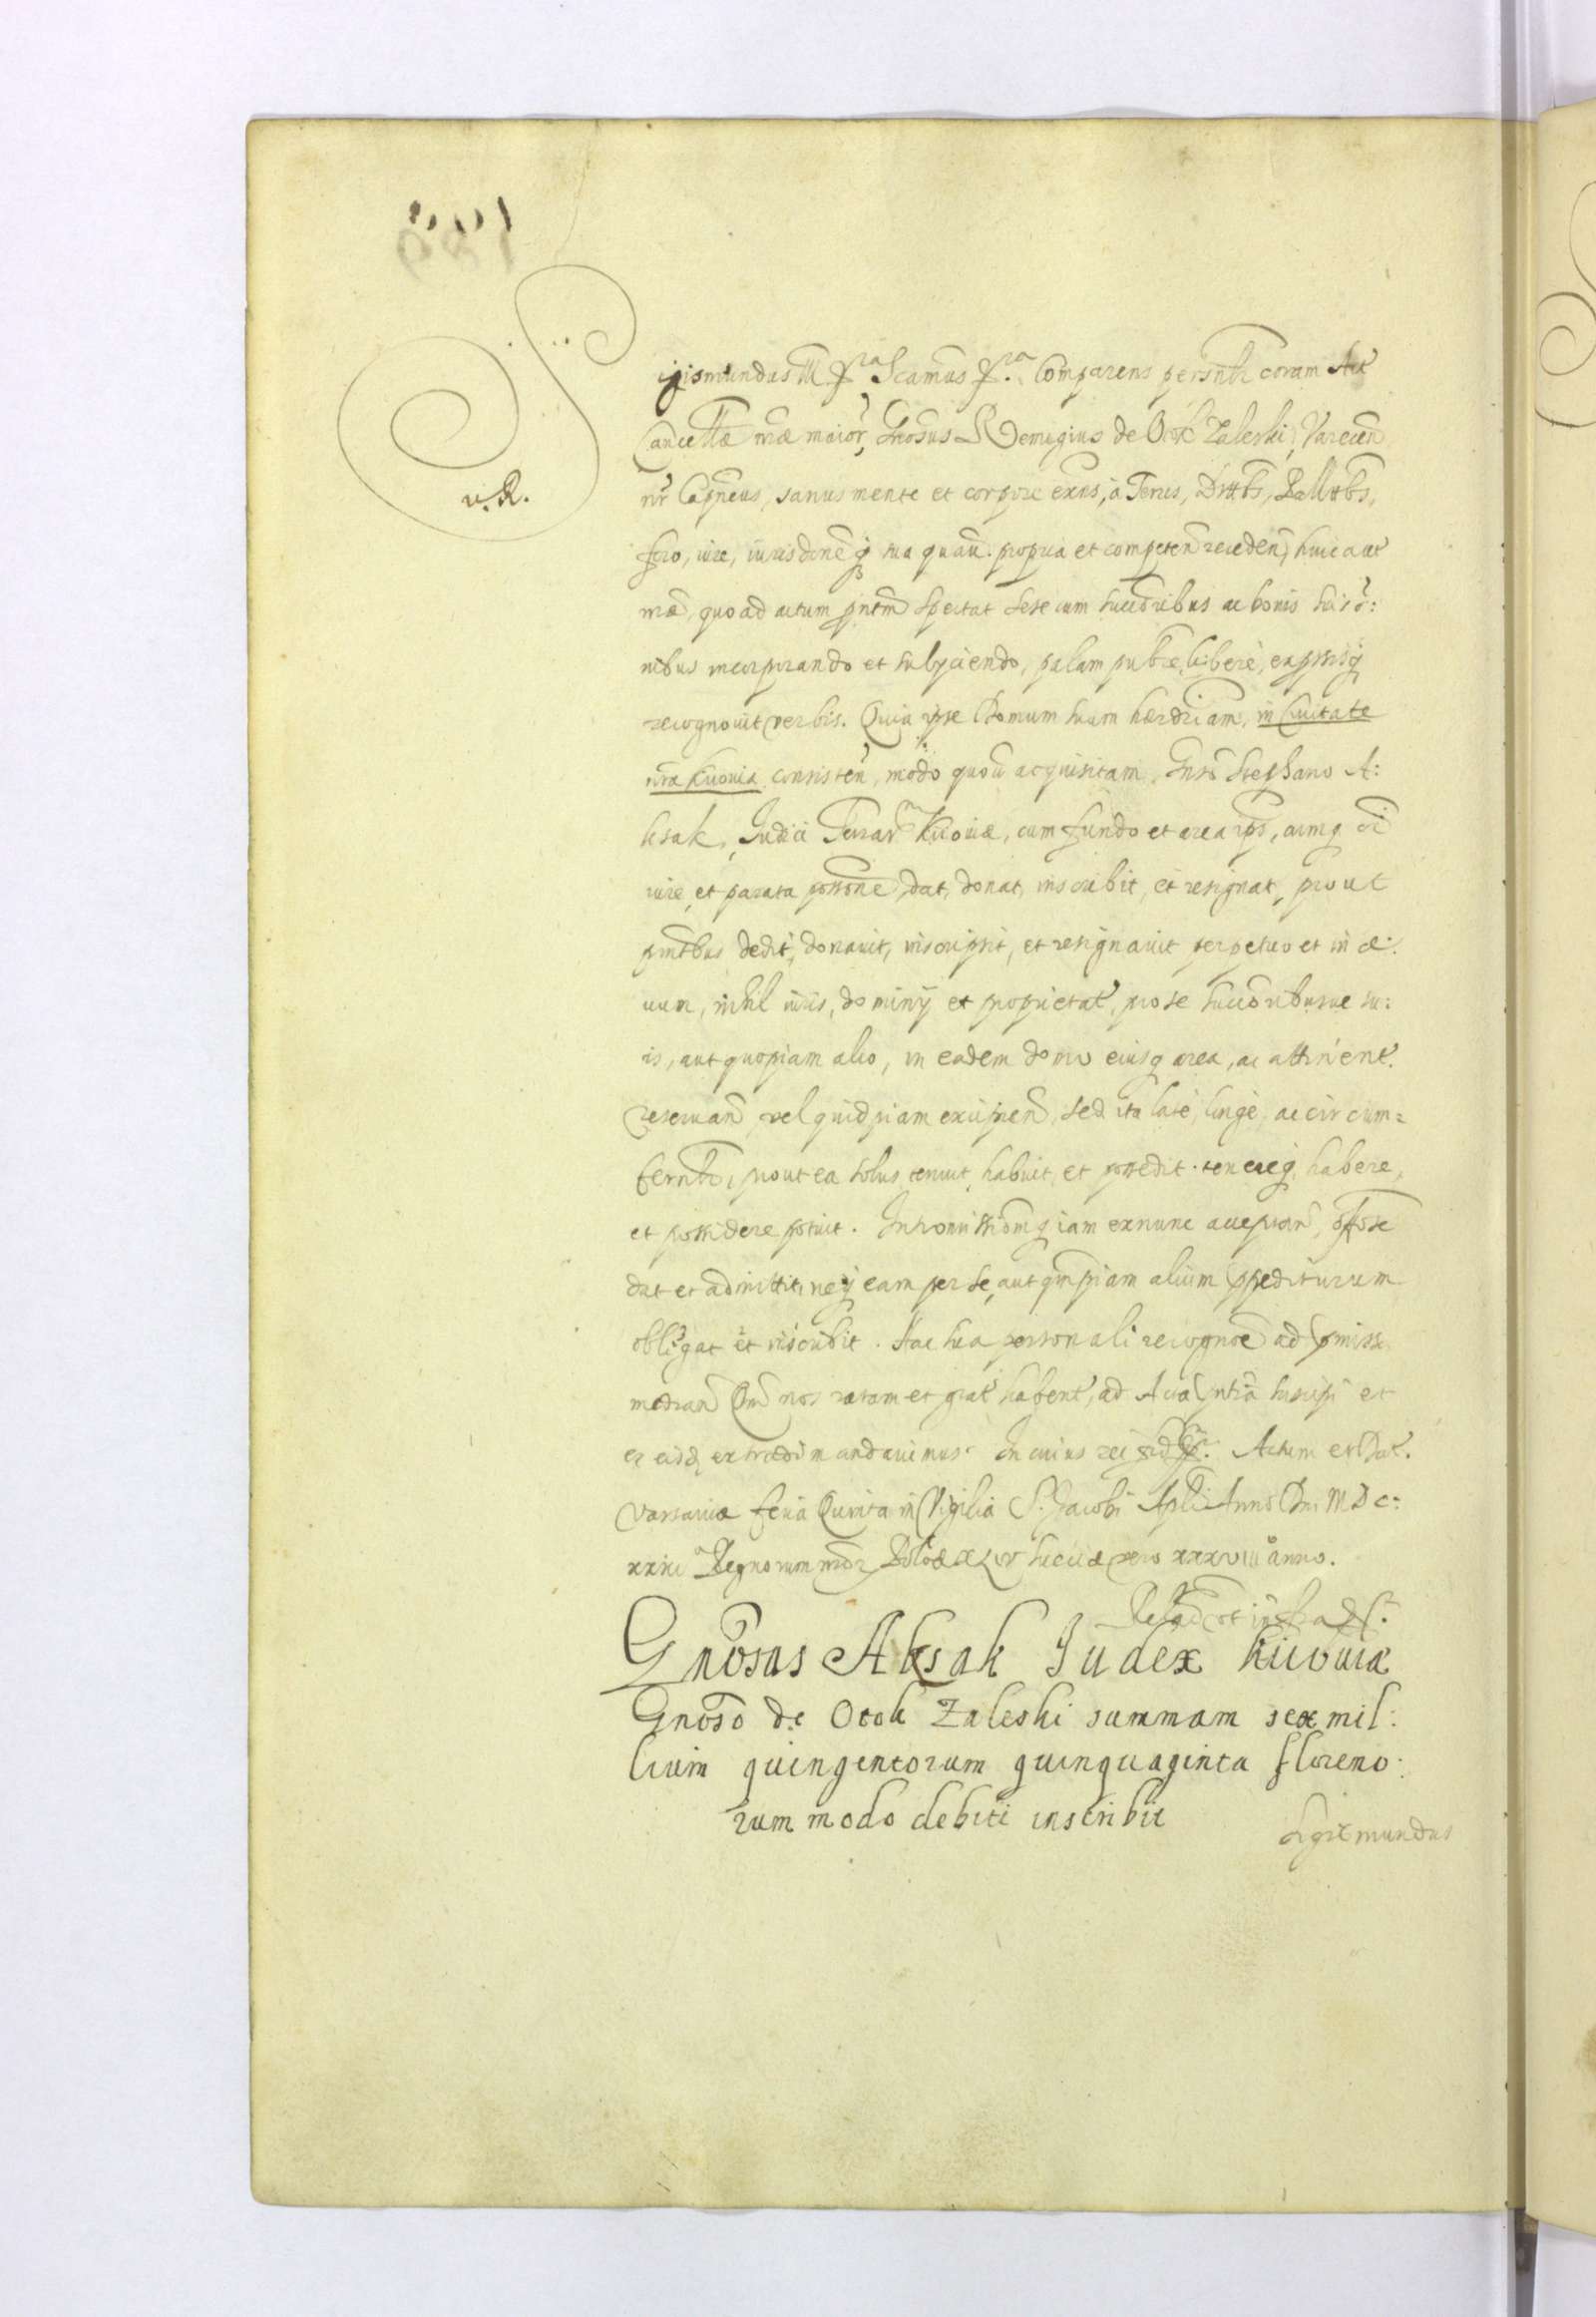 Sigismundus III Scamus Comparens persnlr coram Act
Cancellæ nræ maior, Gnosus Remigius de Otok Zaleski, Varecen
nr Capneus, sanus mente et corpore exns, a Terris, Dttbs, Pallatbs,
foro, iure, iurisdone q sua quavi propria et competen receden, hucaat
nræ, quo ad actum pntm spectat sese cum succoribus ac bonis suis o:
nibus incorporando et subyciendo, palam publce, libere, expssisq
recognovit verbis. Quia ipse Domum suam hærdriam, in Civitate
nra Kiiovia consisten, modo quovi acquisitam, Gnso Stephano A:
ksak, Iudici Terrar Kiioviæ, cum fundo et area ips, cumq oi
iure, et parata possone, dat, donat, inscribit, et resignat, prout
pntibus dedit, donavit, inscripsit, et resignavit perpetuo et in æ:
uum, nihil iuris, dominy et proprietat, pro se succoribusue su:
is, aut quopiam alio, in eadem domo eiusq area, ac attinent.
reservan vel quidpiam excipien, sed ita late, longe, ac circum:
fernlr, prout ea solus tenuit, habuit, et possedit, tenereq, habere,
et possidere potuit. Intromissionmq iam exnunc acceptan, posse
dat et admittit, neq eam per se, aut qmpiam alium ppediturum
obligat et inscribit. Hac sua personali recogne ad pmissa
median Qm nos ratam et grat habent, ad Acta pntia suscipi et
ex eisd extradi mandavimus. In cuius rei fid. Actum et Dat.
Varsaviæ feria Quinta in Vigilia S. Iacobi Apli Anno Dni M.D.C:
xxiv Regnorum nror Poloæ xxxvii Sueciæ vero xxxviii anno.
Gnosus Aksak Iudex Kiioviæ
Gnoso de Otok Zaleski summam sex mil:
lium quingentorum quinquaginta floreno:
rum modo debiti inscribit
Sigismundus